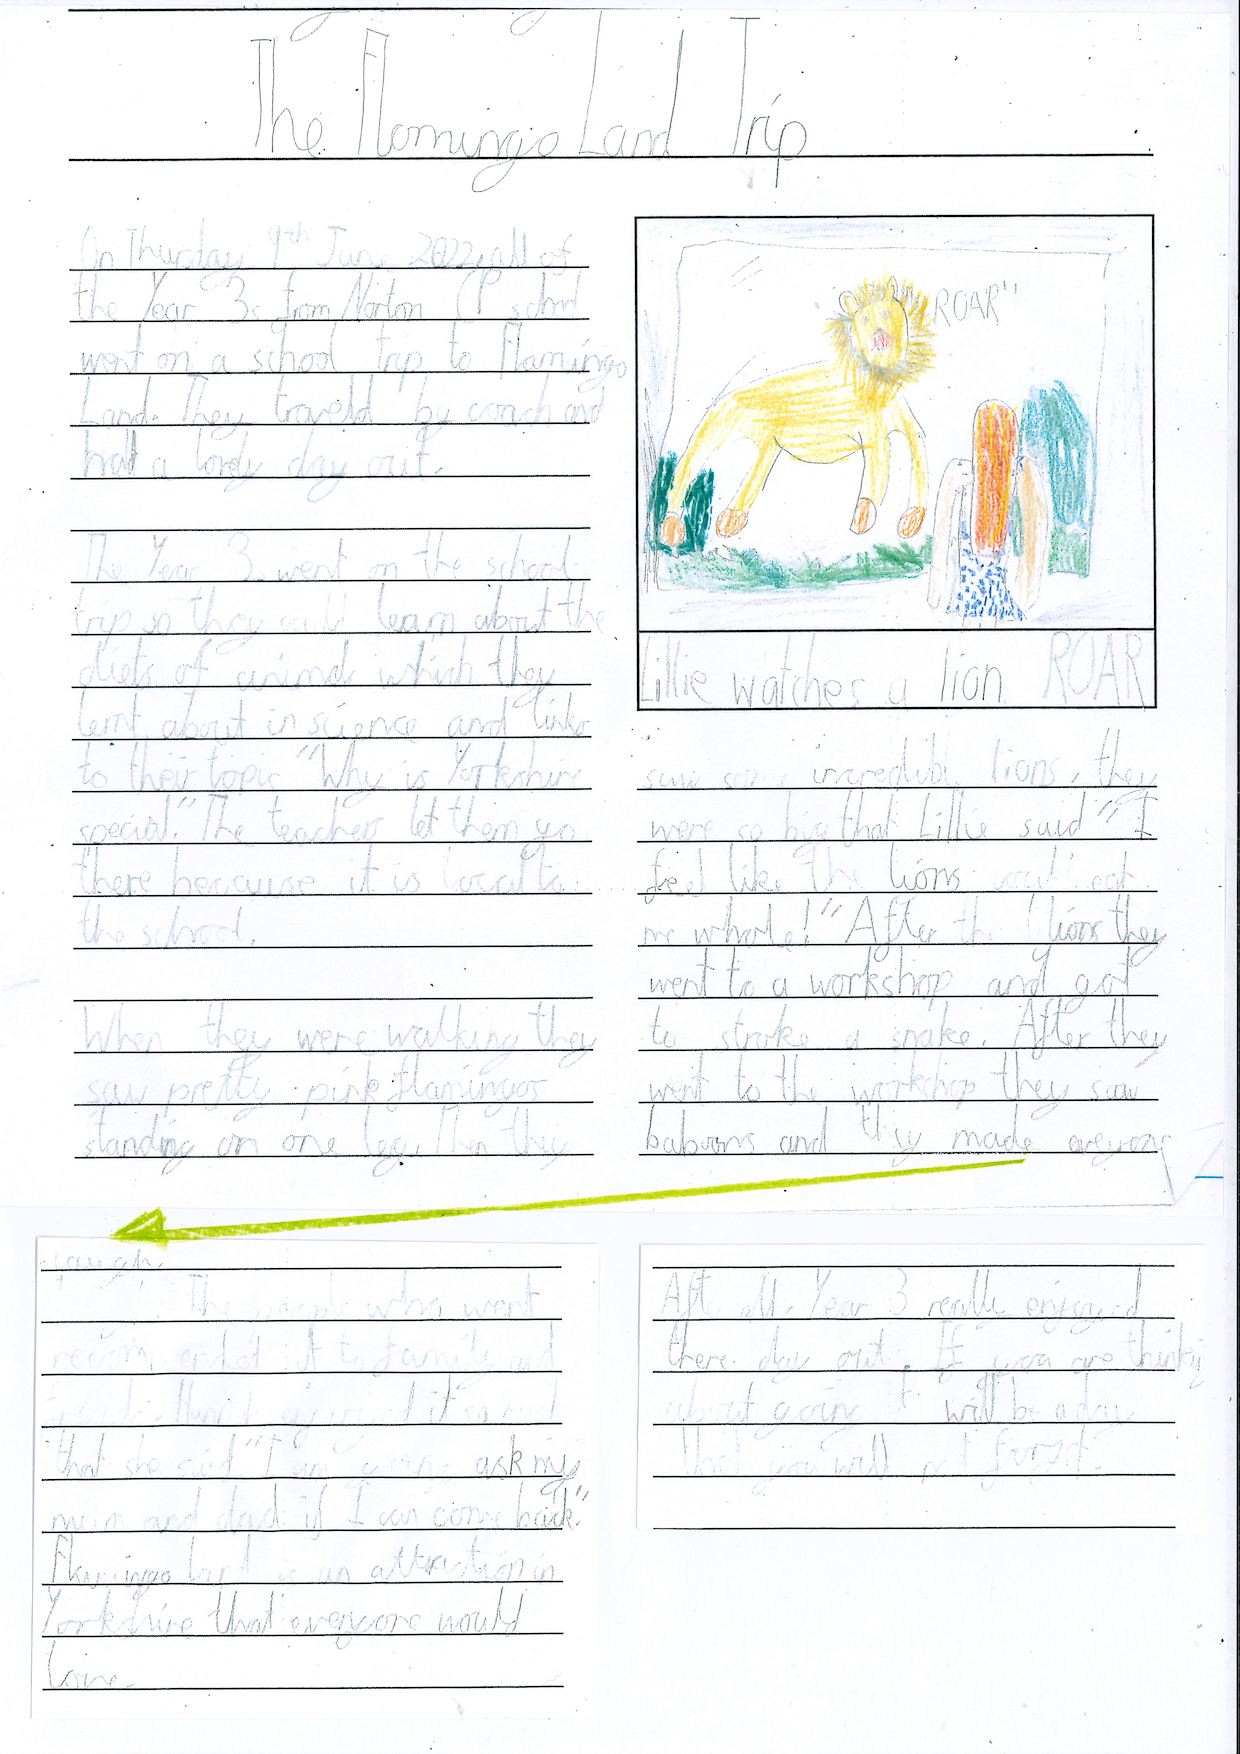 The Flamingo Land Trip
On Thursday 9th June 2022, all of
the Year 3s from Norton CP school
went on a school trip to Flamingo
Land. They traveld by coach and
had a lovely day out.
The Year 3 went on the school
trip so they learn about the
diets of animals which they
lernt about in science and links
to their topic "Why is Yorkshire
special." The teachers let them go
there because it is local to
the school.
When they were walking they
saw pretty pink flamingos
standing on one leg. Then they
ROAR"
Lillie watches a lion ROAR
saw some incredible lions, they
were so big that Lillie said "I
feel like the lions could eat
me whole!" After the lions they
went to a workshop and got
to stroke a snake. After they
went to the workshop they saw
baboons and they made everyone
laugh.
The people who went
it to family and
friends. enjoyed it so
that she said "I am going ask my
mum and dad if I can come back."
Flamingo land is an attraction in
Yorkshire that everyone would
love.
After all Year 3 really enjoyed
there day out. If you are thinking
about going it will be a day
that you will not forget.